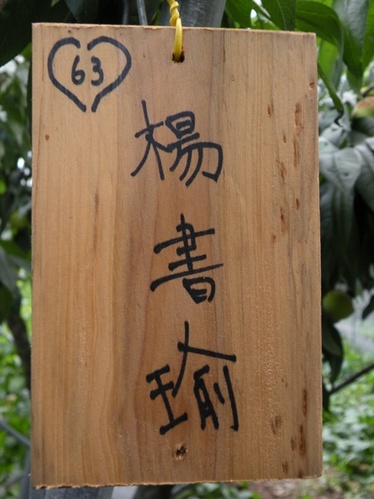 63
楊書瑜